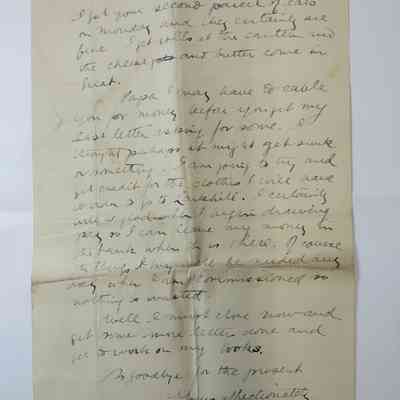 I got your second parcel of eats
on Monday and they certainly are
fine. I get rolls at the canteen and
the cheese and butter come in
great.
Papa I may have to cable
you for money before you get my
last letter asking for some. I
thought perhaps it might get sunk
or something. I am going to try and
get credit for the clothes I will have
to go to Larkhill. I certainly
will be glad when I begin drawing
pay so I can leave my money in
bank when it is there. Of course
things I may be needed any
day when I am commissioned so
nothing is wasted
Well I must close now and
get some more letters done and
get to work on my books.
So goodbye for the present
Yours affectionately